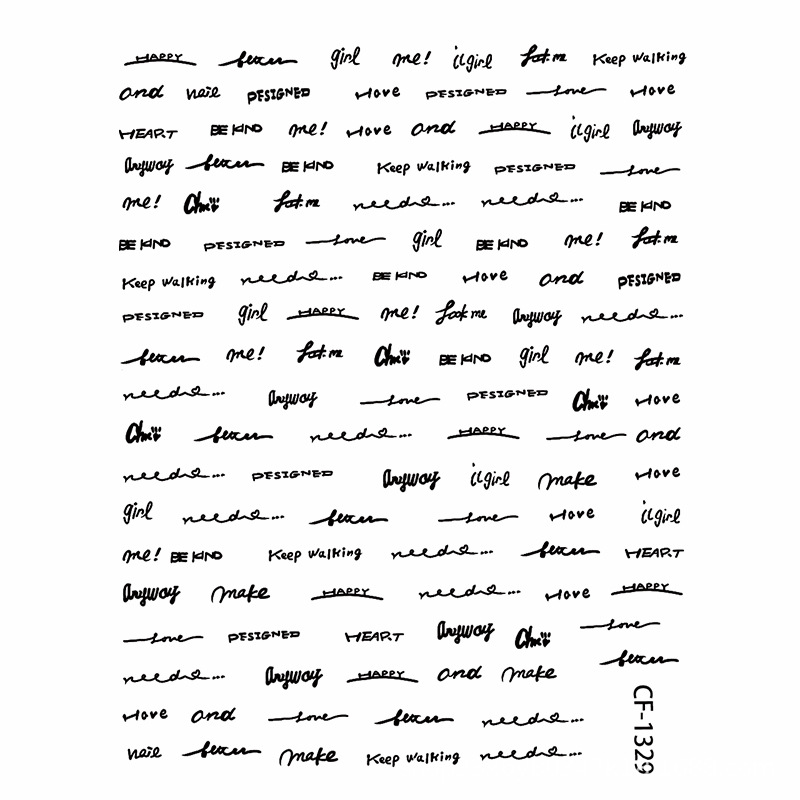 HAPPY better girl me! ilgirl look me Keep walking
and nail DESIGNED Love DESIGNED Love Love
HEART BE KIND me! Love and HAPPY ilgirl Anyway
Anyway better BE KIND Keep walking DESIGNED Love
me! look me need... need... BE KIND
BE KIND DESIGNED Love girl BE KIND me! look me
Keep walking need... BE KIND Love and DESIGNED
DESIGNED girl HAPPY me! look me Anyway need...
better me! look me BE KIND girl me! look me
need... Anyway Love DESIGNED Love
better need... HAPPY Love and
need... DESIGNED Anyway ilgirl make Love
girl need... better Love Love ilgirl
me! BE KIND Keep walking need... better HEART
Anyway make HAPPY need... Love HAPPY
Love DESIGNED HEART Anyway Love
better
need... Anyway HAPPY and make
Love and Love better need...
nail better make Keep walking need...
CF-1329